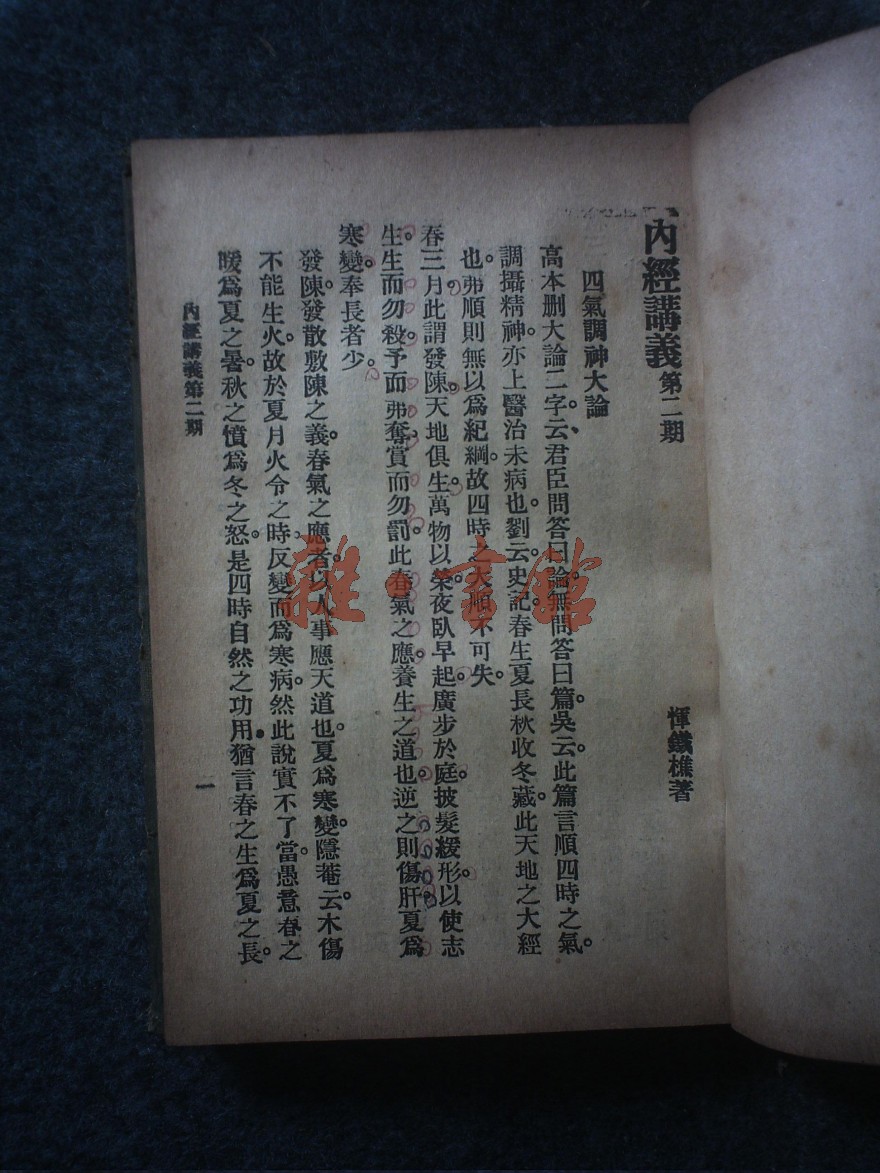 內經講義第二期
惲鐵樵著
四氣調神大論
高本删大論二字云君臣問答曰論無問答曰篇吳云此篇言順四時之氣。
調攝精神亦上醫治未病也。劉云史記春生夏長秋收冬藏此天地之大經
也弗順則無以爲紀綱。故四時之大順不可失。
春三月。此謂發陳。天地俱生。萬物以榮。夜臥早起。廣步於庭。披髮緩形。以使志
生。生而勿殺。予而弗奪。賞而勿罰。此春氣之應。養生之道也。逆之則傷肝。夏爲
寒變。奉長者少。
發陳。發散敷陳之義。春氣之應者。以人事應天道也。夏爲寒變。隱菴云。木傷
不能生火。故於夏月火令之時。反變而爲寒病。然此說實不了當。愚意春之
暖爲夏之暑。秋之憤爲冬之怒。是四時自然之功用。猶言春之生爲夏之長。
內經講義第二期
一
雜·書館